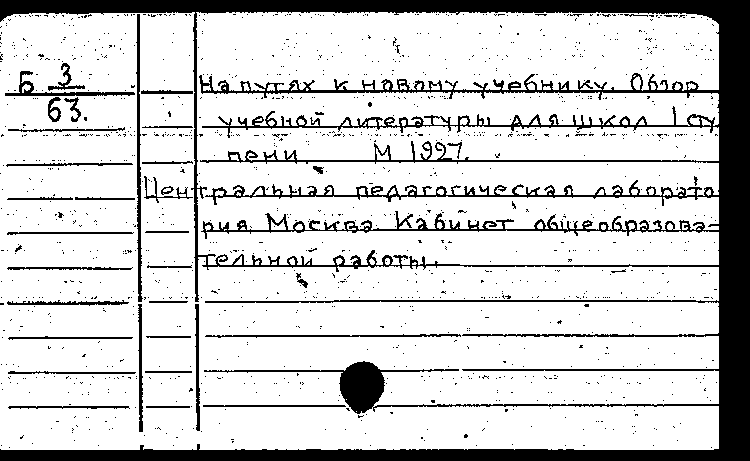 Б 3/63.
На путях к новому учебнику. Обзор
учебной литературы для школ I сту
пени М 1927.
Центральная педагогическая лаборато
рия Москва Кабинет общеобразова=
тельной работы.